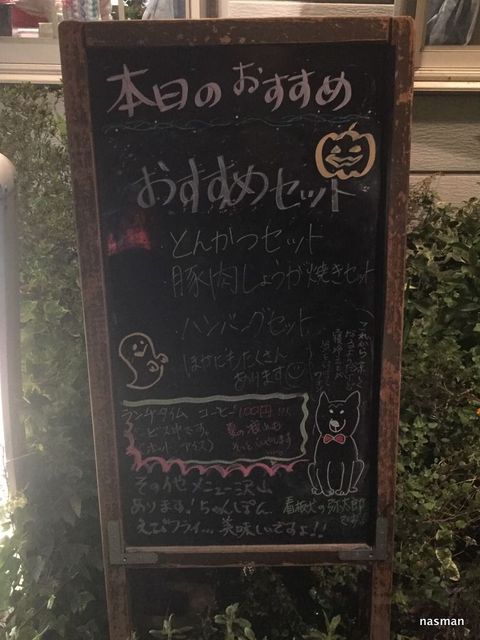 本日のおすすめ
おすすめセット
・とんかつセット
・豚肉しょうが焼きセット
・ハンバーグセット
ほかにもたくさん
あります
ランチタイム コーヒー100円
ビス中です。
(ホット・アイス)
その他メニュー沢山
あります!ちゃんぽん
えびフライ...美味しいですよ!!
看板犬の弥太郎
です。
nasman